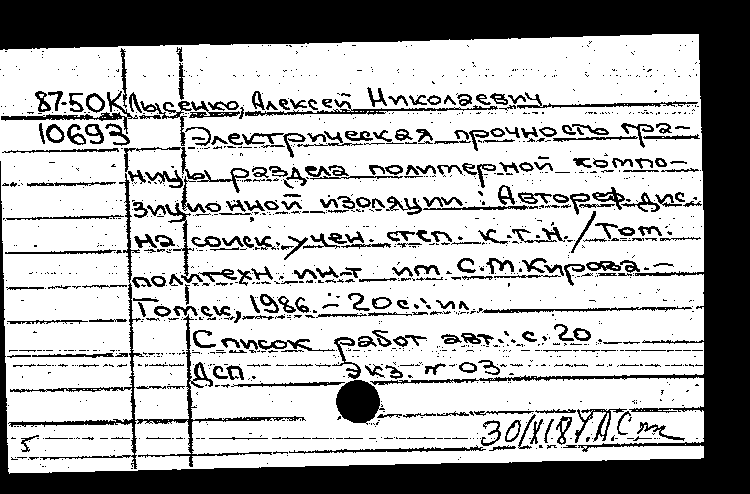 87-50К Лысенко, Алексей Николаевич
10693 Электрическая прочность гра-
ницы раздела полимерной компо-
зиционной изоляции : Автореф. дис.
на соиск. учен. степ. к.т.н. / Том.
политехн. ин-т им. С.М.Кирова. –
Томск, 1986. – 20 с. : ил.
Список работ авт.: с. 20.
ДСП. Экз. № 03.
5